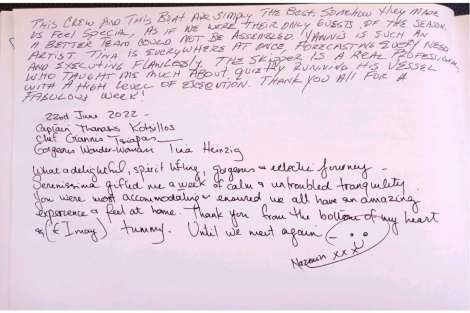 THIS CREW AND THIS BOAT ARE SIMPLY THE BEST. SOMEHOW THEY MADE
US FEEL SPECIAL, AS IF WE WERE THEIR ONLY GUESTS OF THE SEASON.
A BETTER TEAM COULD NOT BE ASSEMBLED. YANNIS IS SUCH AN
ARTIST. TINA IS EVERYWHERE AT ONCE, FORECASTING EVERY NEED
AND EXECUTING FLAWLESSLY. THE SKIPPER IS A REAL PROFESSIONAL
WHO TAUGHT ME MUCH ABOUT QUIETLY RUNNING HIS VESSEL
WITH A HIGH LEVEL OF EXECUTION. THANK YOU ALL FOR A
FABULOUS WEEK!
22nd June 2022 -
Captain Thanasis
Chef Giannis
Gorgeous Wonder-Woman Ina Heinzig
What a delightful, spirit lifting, gorgeous & eclectic journey -
Serenissima gifted me a week of calm & untroubled tranquility.
You were most accomodating & ensured we all have an amazing
experience & feel at home. Thank you from the bottom of my heart
& (if I may) tummy. Until we meet again -
xxx